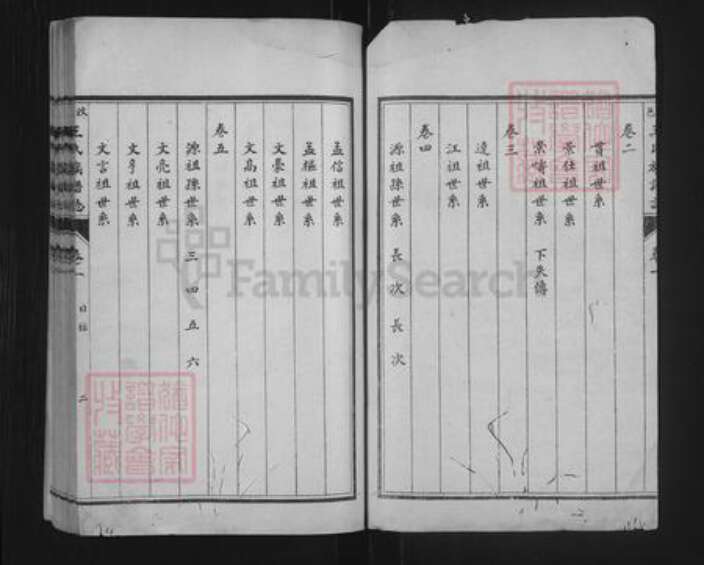 卷二
貫祖世系
景仕祖世系
景嚋祖世系 下失傳
卷三
逵祖世系
江祖世系
卷四
源祖孫世系 長次長次
孟信祖世系
孟樞祖世系
文豪祖世系
文高祖世系
卷五
源祖孫世系 三四五六
文亮祖世系
文亨祖世系
文言祖世系
王氏族譜
卷一
目錄
二
FamilySearch